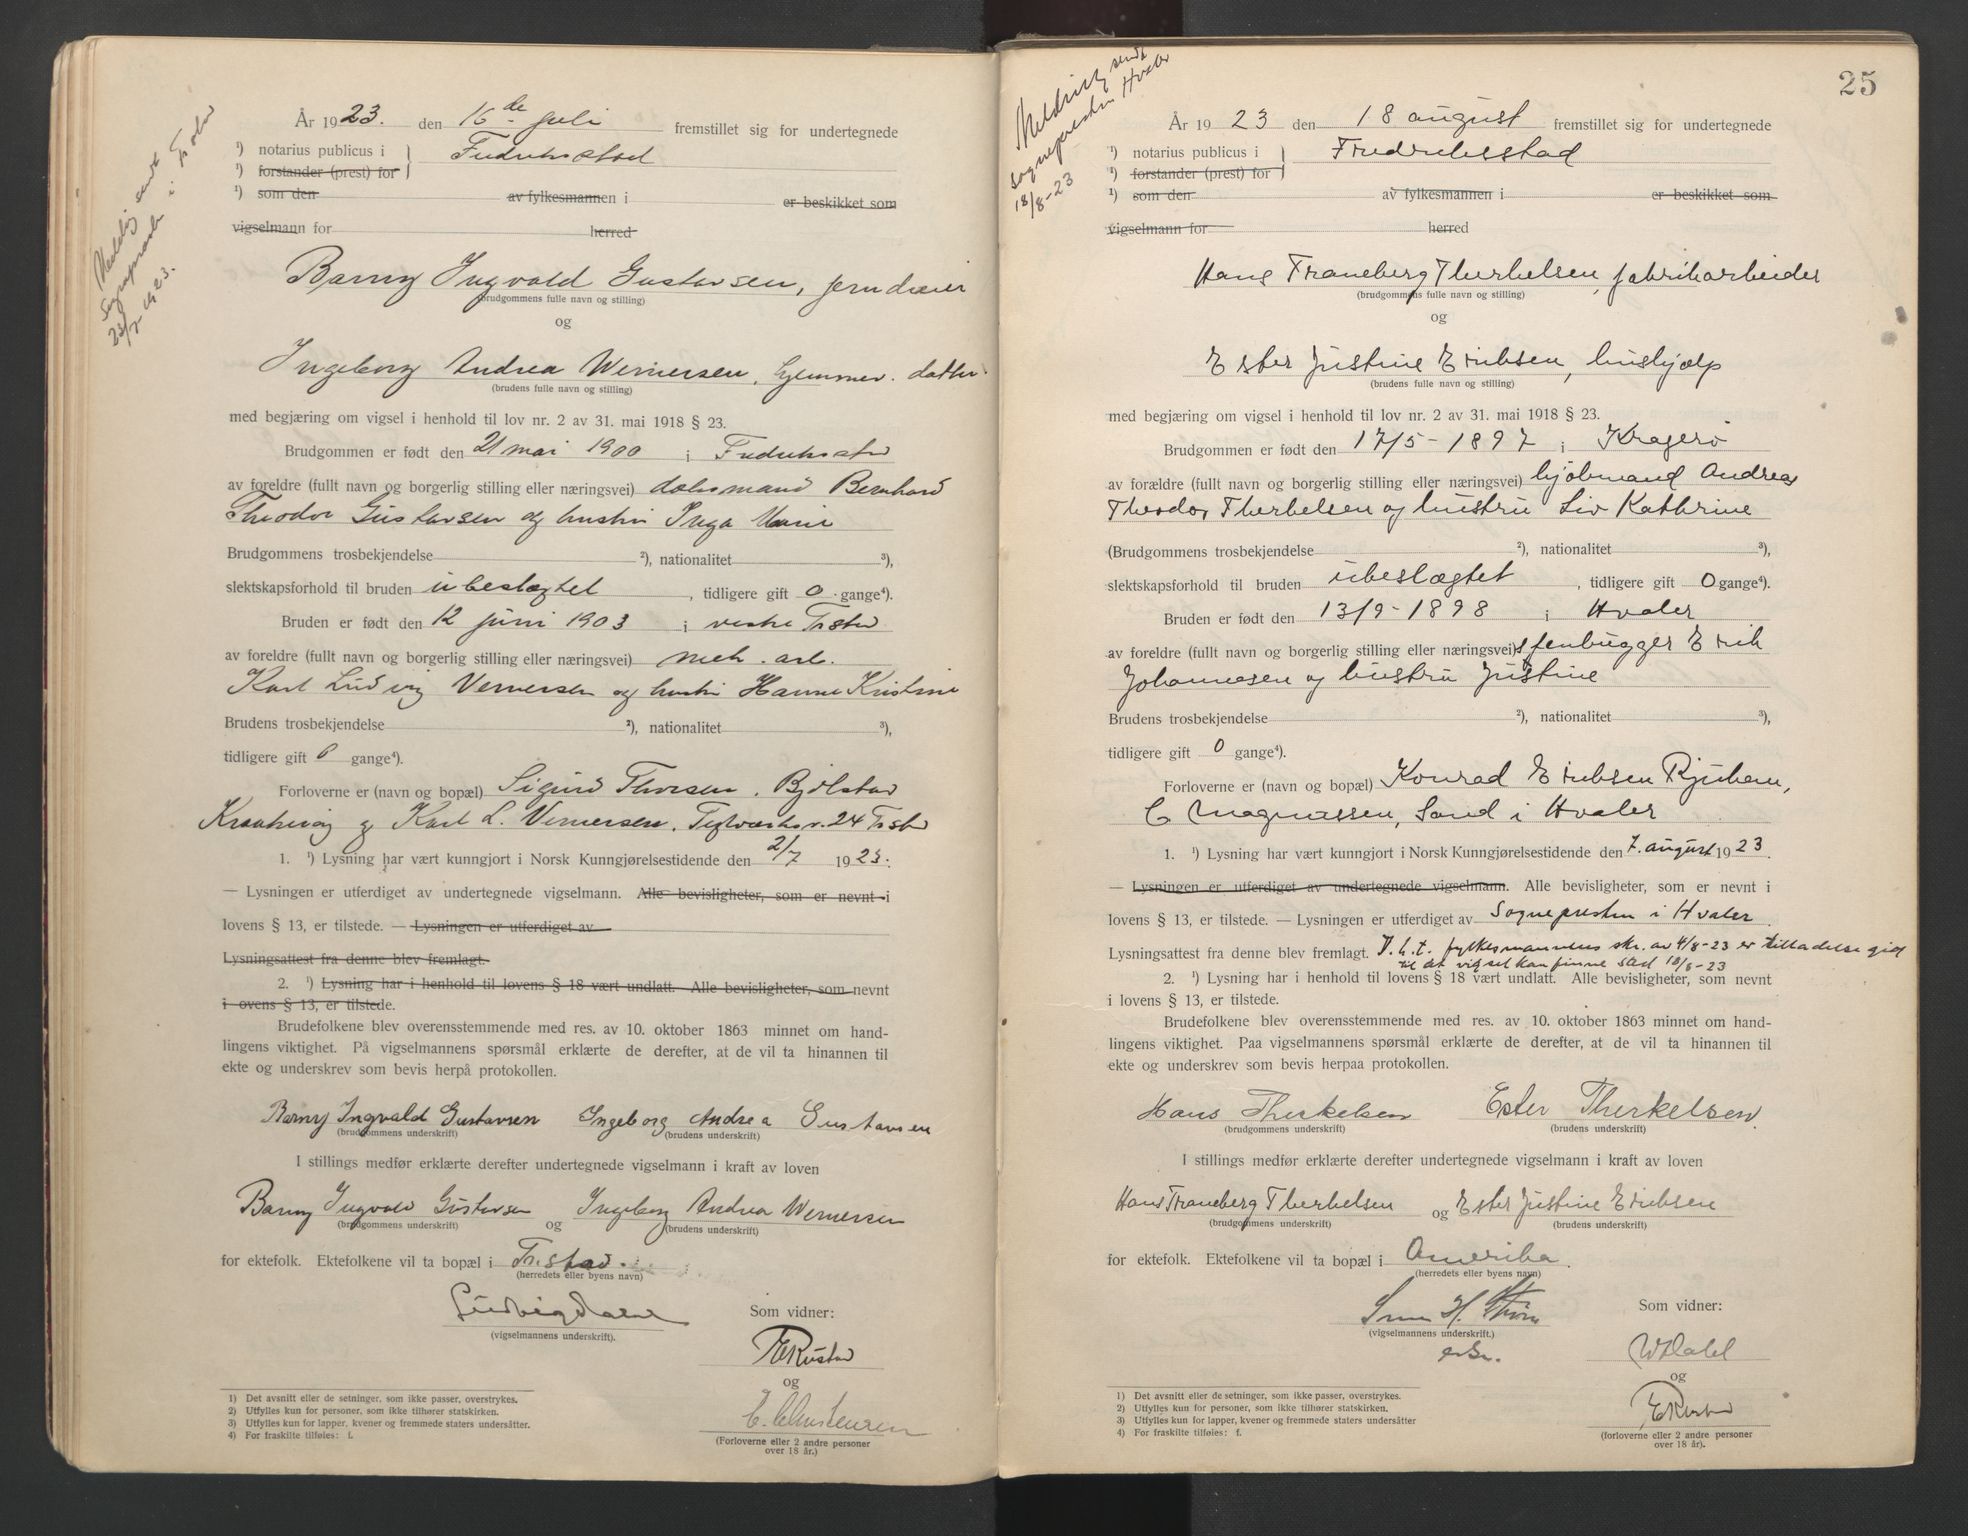 Melding sendt
Sognepresten i Fr.stad
23/7 1923.
År 1923. den 16de juli fremstillet sig for undertegnede
¹) notarius publicus i Fredrikstad
¹) forstander (prest) for
¹) som den av fylkesmannen i er beskikket som
vigselmann for herred
Barny Ingvald Gustavsen, jerndreier
(brudgommens fulle navn og stilling)
og
Ingeborg Andrea Wernersen, hjemmev. datter
(brudens fulle navn og stilling)
med begjæring om vigsel i henhold til lov nr. 2 av 31. mai 1918 § 23.
Brudgommen er født den 21 mai 1900 i Fredrikstad
av foreldre (fullt navn og borgerlig stilling eller næringsvei) Bernhard
Theodor Gustavsen og hustru Inga Marie
Brudgommens trosbekjendelse ²), nationalitet ³),
slektskapsforhold til bruden ubeslægtet, tidligere gift 0 gange⁴).
Bruden er født den 12 juni 1903 i vestre Fr.stad
av foreldre (fullt navn og borgerlig stilling eller næringsvei) mek. arb.
Karl Ludvig Wernersen og hustru Hanne Kristine
Brudens trosbekjendelse ²), nationalitet ³),
tidligere gift 0 gange⁴).
Forloverne er (navn og bopæl) Sigurd Thoresen, Bjølstad
Kråkerøy og Karl L. Wernersen, Teglverksv. 24 Fr.stad
1. ¹) Lysning har vært kunngjort i Norsk Kunngjørelsestidende den 2/7 1923.
— Lysningen er utferdiget av undertegnede vigselmann. Alle bevisligheter, som er nevnt i
lovens § 13, er tilstede. — Lysningen er utferdiget av
Lysningsattest fra denne blev fremlagt.
2. ¹) Lysning har i henhold til lovens § 18 vært undlatt. Alle bevisligheter, som nevnt
i ovens § 13, er tilstede.
Brudefolkene blev overensstemmende med res. av 10. oktober 1863 minnet om hand-
lingens viktighet. På vigselmannens spørsmål erklærte de derefter, at de vil ta hinannen til
ekte og underskrev som bevis herpå protokollen.
Barny Ingvald Gustavsen Ingeborg Andrea Gustavsen
(brudgommens underskrift) (brudens underskrift)
I stillings medfør erklærte derefter undertegnede vigselmann i kraft av loven
Barny Ingvald Gustavsen og Ingeborg Andrea Wernersen
(brudgommens underskrift) (brudens underskrift)
for ektefolk. Ektefolkene vil ta bopæl i Fr.stad.
(herredets eller byens navn)
(vigselmannens underskrift).
Som vidner:
ERustad
og
E. Christensen
(Forloverne eller 2 andre personer
over 18 år.)
1) Det avsnitt eller de setninger, som ikke passer, overstrykes.
2) Utfylles kun for personer, som ikke tilhører statskirken.
3) Utfylles kun for lapper, kvener og fremmede staters undersåtter.
4) For fraskilte tilføies: f.
25
Melding sendt
sognepresten Hvaler
18/8-23
År 1923 den 18 august fremstillet sig for undertegnede
¹) notarius publicus i Fredrikstad
¹) forstander (prest) for
¹) som den av fylkesmannen i er beskikket som
vigselmann for herred
Hans Traneberg Therkelsen, fabrikarbeider
(brudgommens fulle navn og stilling)
og
Ester Justine Eriksen, hushjælp
(brudens fulle navn og stilling)
med begjæring om vigsel i henhold til lov nr. 2 av 31. mai 1918 § 23.
Brudgommen er født den 17/5-1897 i Kragerø
av forældre (fullt navn og borgerlig stilling eller næringsvei) kjøbmand Andreas
Theodor Therkelsen og hustru Liv Kathrine
(Brudgommens trosbekjendelse ²), nationalitet ³),
slektskapsforhold til bruden ubeslægtet, tidligere gift 0 gange⁴).
Bruden er født den 13/9-1898 i Hvaler
av foreldre (fullt navn og borgerlig stilling eller næringsvei) stenhugger Erik
Johannesen og hustru Justine
Brudens trosbekjendelse ²), nationalitet ³),
tidligere gift 0 gange⁴).
Forloverne er (navn og bopæl) Konrad Eriksen Rjukan,
C Magnussen, Sand i Hvaler
1. ¹) Lysning har vært kunngjort i Norsk Kunngjørelsestidende den 7. august 1923.
— Lysningen er utferdiget av undertegnede vigselmann. Alle bevisligheter, som er nevnt i
lovens § 13, er tilstede. — Lysningen er utferdiget av Sognepresten i Hvaler.
Lysningsattest fra denne blev fremlagt. I h. t. fylkesmannens skr. av 4/8-23 er tilladelse git
til at vigsel kan finne sted 18/8-23
2. ¹) Lysning har i henhold til lovens § 18 vært undlatt. Alle bevisligheter, som nevnt
i lovens § 13, er tilstede.
Brudefolkene blev overensstemmende med res. av 10. oktober 1863 minnet om hand-
lingens viktighet. Paa vigselmannens spørsmål erklærte de derefter, at de vil ta hinannen til
ekte og underskrev som bevis herpaa protokollen.
Hans Therkelsen Ester Therkelsen.
(brudgommens underskrift) (brudens underskrift)
I stillings medfør erklærte derefter undertegnede vigselmann i kraft av loven
Hans Traneberg Therkelsen og Ester Justine Eriksen
(brudgommens underskrift) (brudens underskrift)
for ektefolk. Ektefolkene vil ta bopæl i Amerika.
(herredets eller byens navn)
(vigselmannens underskrift.)
Som vidner:
og
ERustad
(forloverne eller 2 andre personer
over 18 år).
1) Det avsnitt eller de setninger, som ikke passer, overstrykes.
2) Utfylles kun for personer, som ikke tilhører statskirken.
3) Utfylles kun for lapper, kvener og fremmede staters undersåtter
4) For fraskilte tilføies: f.